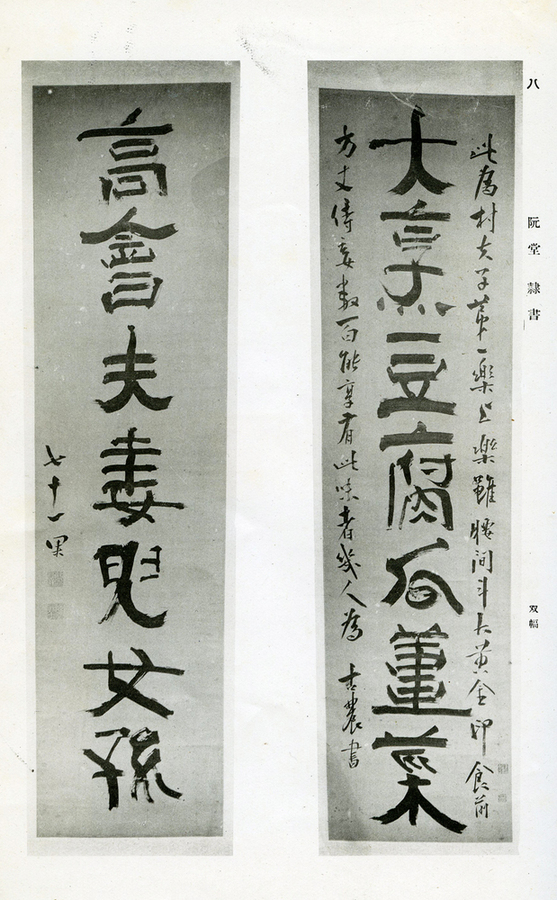 八 阮堂 隷書 双幅
此為村夫子第一樂上樂雖腰間斗大黃金印食前
大烹豆腐瓜薑菜
方丈侍妾數百能享有此味者幾人為 古農書
高會夫妻兒女孫
七十一果